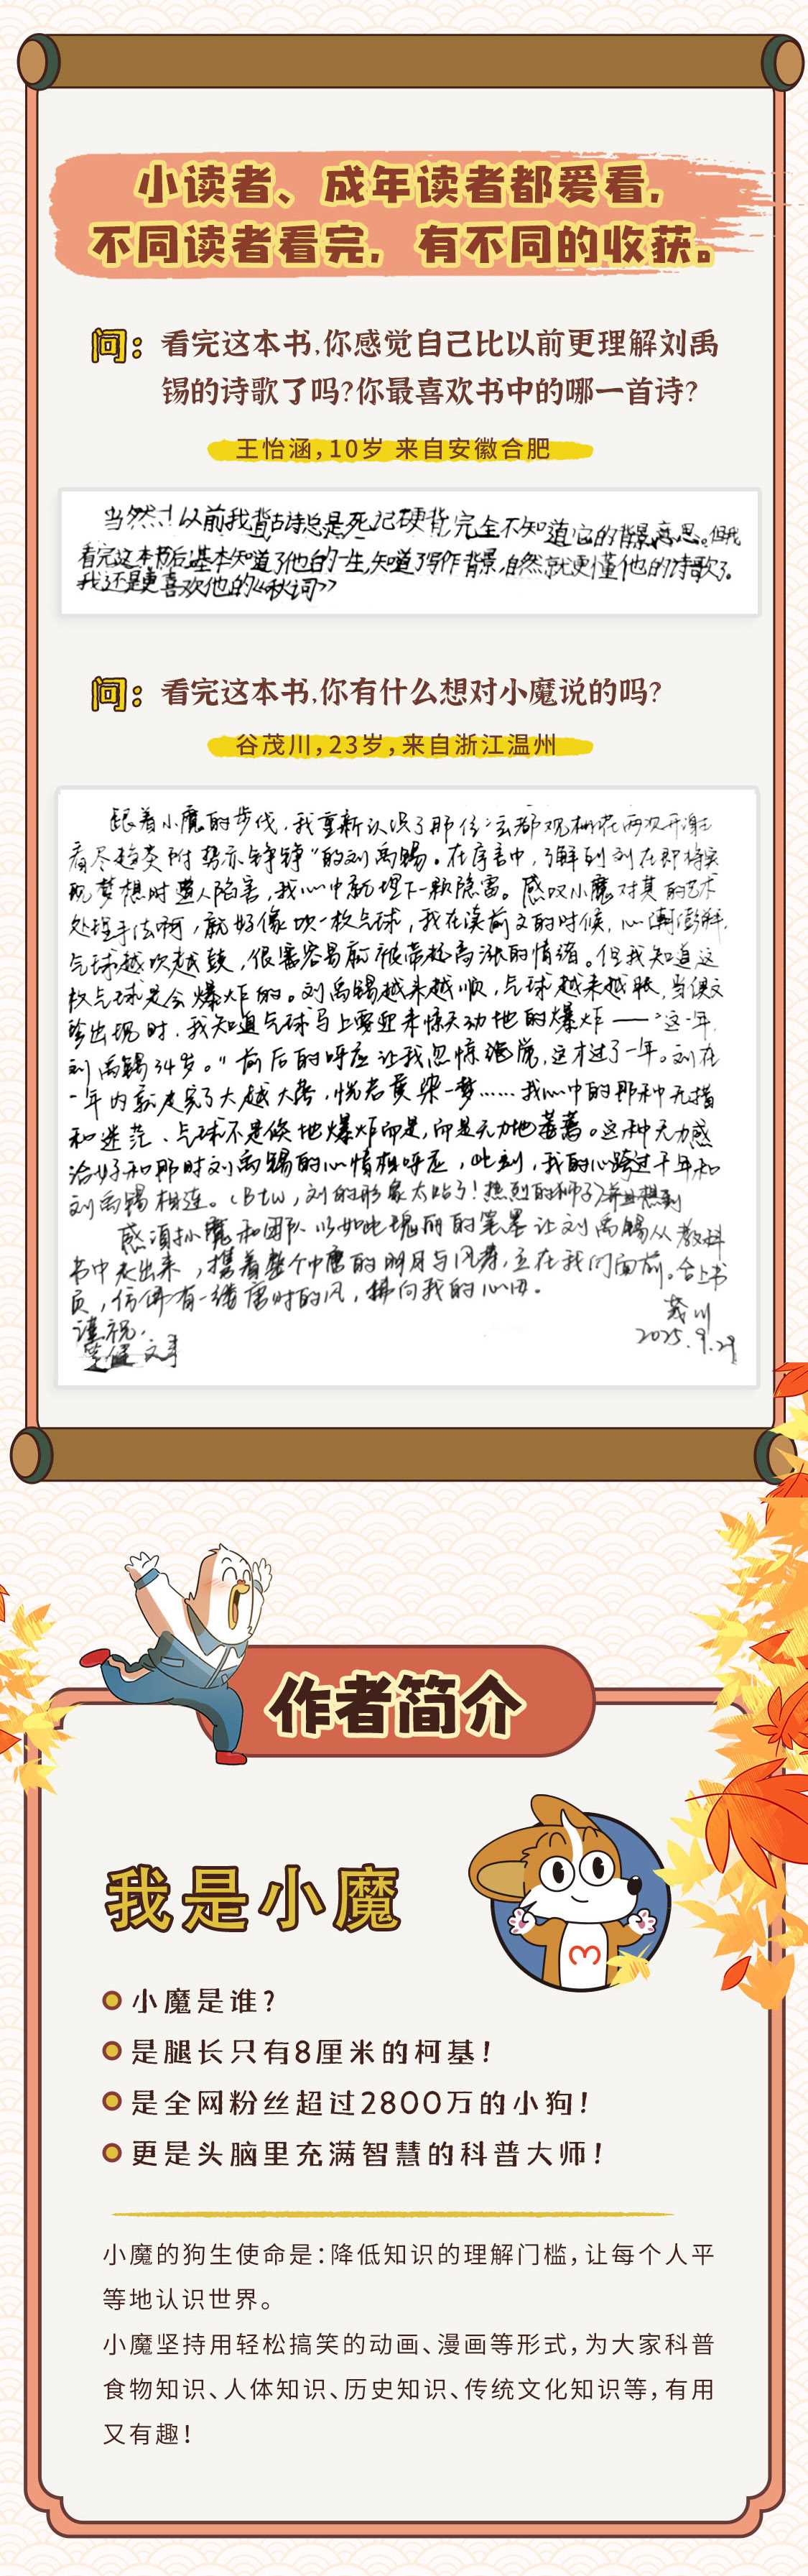 小读者、成年读者都爱看,
不同读者看完, 有不同的收获。
问: 看完这本书,你感觉自己比以前更理解刘禹
锡的诗歌了吗?你最喜欢书中的哪一首诗?
王怡涵,10岁 来自安徽合肥
当然!以前我背古诗总是死记硬背,完全不知道它的背景、意思。但我
看完这本书后,基本知道了他的一生,知道了写作背景,自然就更懂他的诗歌了。
我还是更喜欢他的《秋词》
问: 看完这本书,你有什么想对小魔说的吗?
谷茂川,23岁,来自浙江温州
跟着小魔的步伐,我重新认识了那位“玄都观桃花两次开谢
看尽趋炎附势亦铮铮”的刘禹锡。在序言中,了解到刘在即将实
现梦想时遭人陷害,我心中就埋下一颗隐雷。感叹小魔对其的艺术
处理手法啊,就好像吹一枚气球,我在读前文的时候,心潮澎湃,
气球越吹越鼓,很容易就被带起高涨的情绪。但我知道这
枚气球是会爆炸的。刘禹锡越来越顺,气球越来越胀,当
出现时,我知道气球马上要迎来惊天动地的爆炸——“这一年,
刘禹锡34岁。”前后的呼应让我忽惊觉,这才过了一年。刘在
一年内就走完了大起大落,恍若黄粱一梦……我心中的那种无措
和迷茫、气球不是倏地爆炸而是,而是无力地蔫着。这种无力感
恰好和那时刘禹锡的心情相呼应,此刻,我的心跨过千年和
刘禹锡相连。(Btw,刘的形象太贴了!热烈的狮子)并且想到
感谢小魔和团队以如此瑰丽的笔墨让刘禹锡从教科
书中走出来,携着整个中唐的明月与风骨,立在我们面前。合上书
页,仿佛有一缕唐时的风,拂向我的心田。
谨祝
茂川
2025.9.29
作者简介
我是小魔
小魔是谁?
是腿长只有8厘米的柯基!
是全网粉丝超过2800万的小狗!
更是头脑里充满智慧的科普大师!
小魔的狗生使命是:降低知识的理解门槛,让每个人平
等地认识世界。
小魔坚持用轻松搞笑的动画、漫画等形式,为大家科普
食物知识、人体知识、历史知识、传统文化知识等,有用
又有趣!